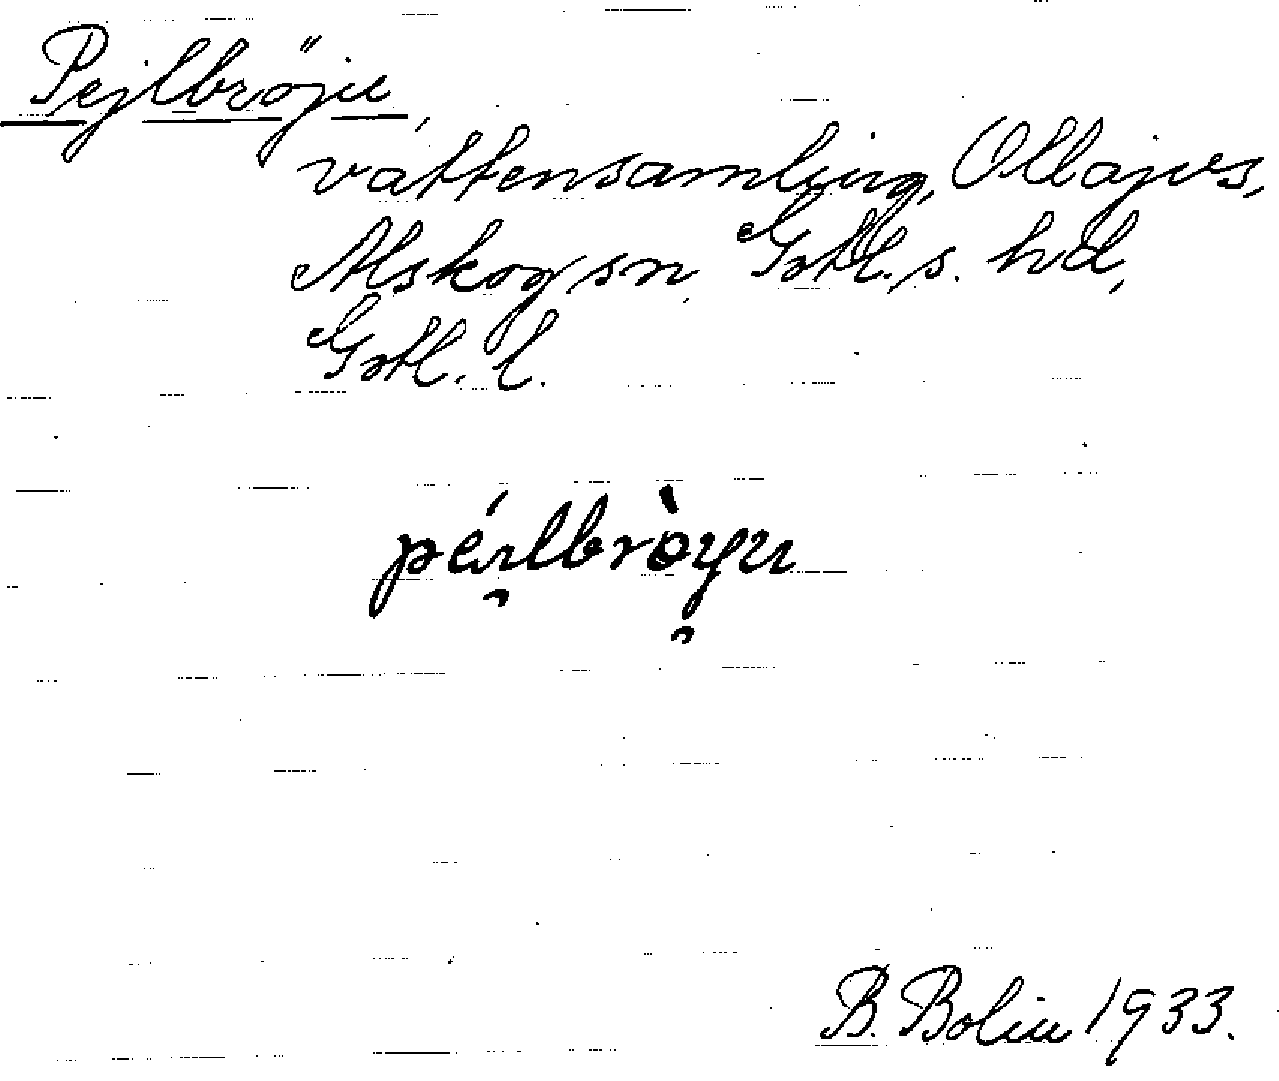 Pejlbröju,
vattensamling, Ollajvs,
Alskog sn, Gotl. s. hd,
Gotl. l.
péılbròyu
B. Bolin 1933.